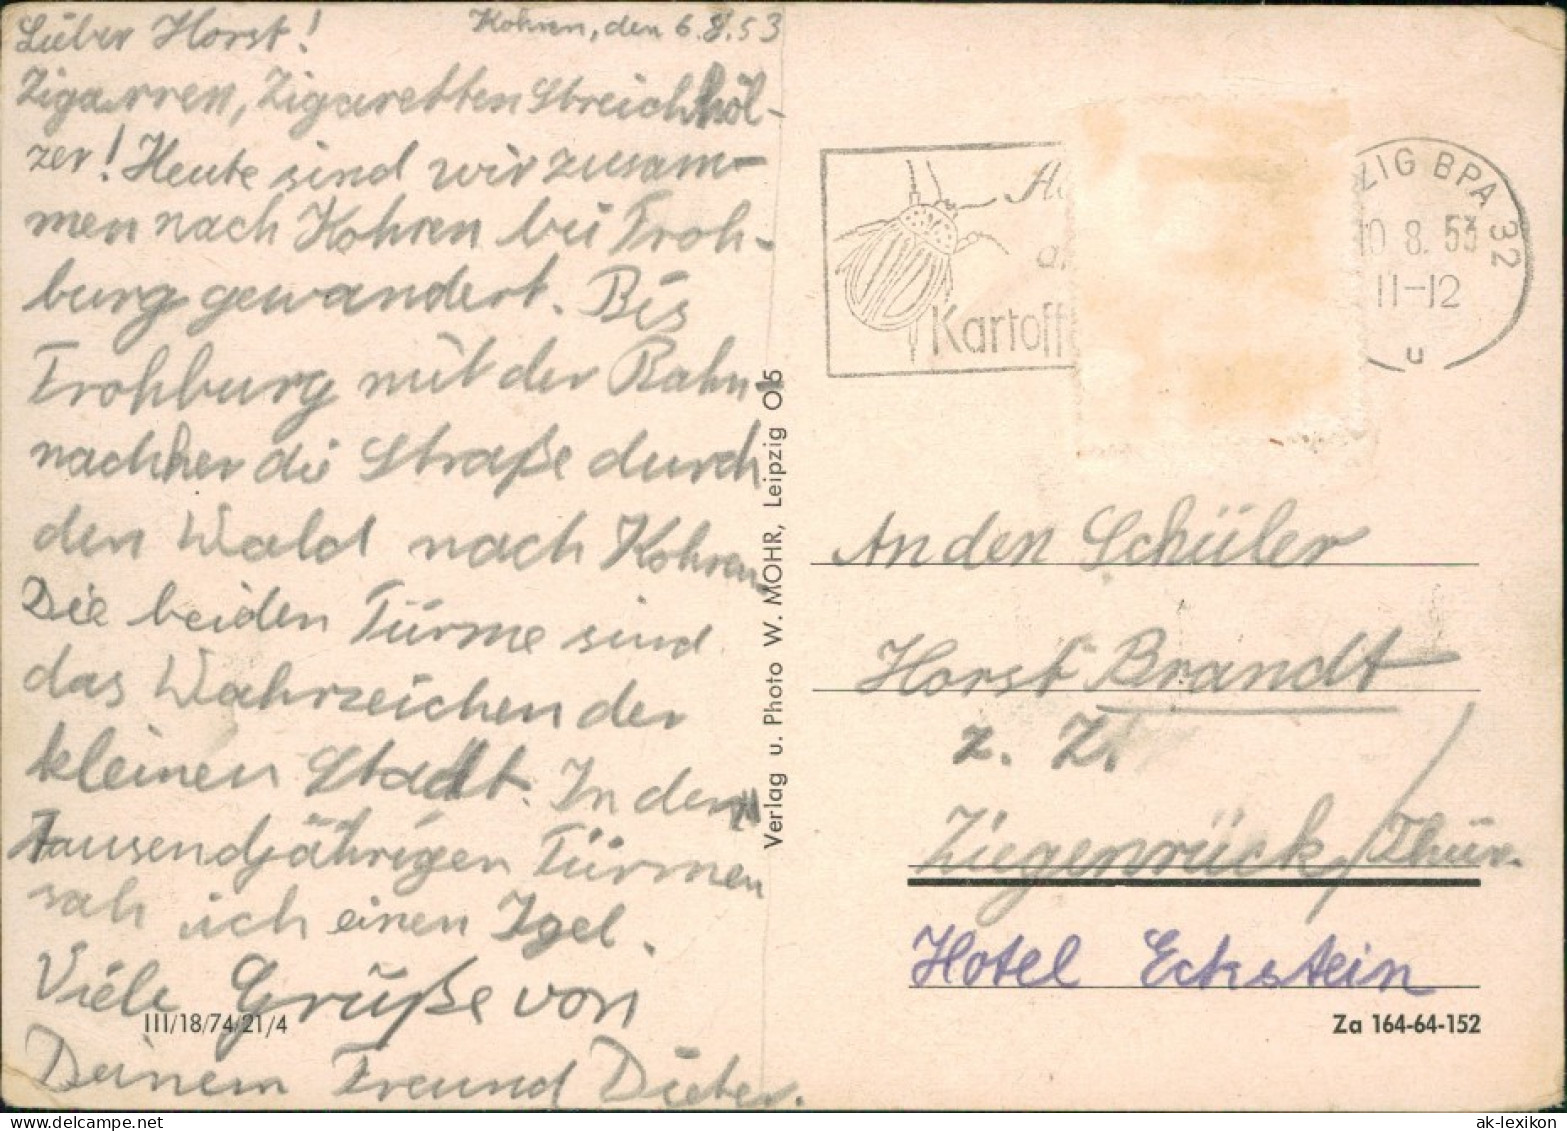 Kohren, den 6.8.53
Lieber Horst!
Zigarren, Zigaretten Streichhöl-
zer! Heute sind wir zusam-
men nach Kohren bei Froh-
burg gewandert. Bis
Frohburg mit der Bahn
nachher die Straße durch
den Wald nach Kohren
Die beiden Türme sind
das Wahrzeichen der
kleinen Stadt. In den
tausendjährigen Türmen
sah ich einen Igel.
Viele Grüße von
Deinem Freund Dieter.
III/18/74/21/4
Verlag u. Photo W. MOHR, Leipzig O 5
Kartoff
ZIG BPA 32
10.8.53
11-12
u
An den Schüler
Horst Brandt
z. Z.
Ziegenrück/Thür.
Hotel Eckstein
Za 164-64-152
ak-lexikon